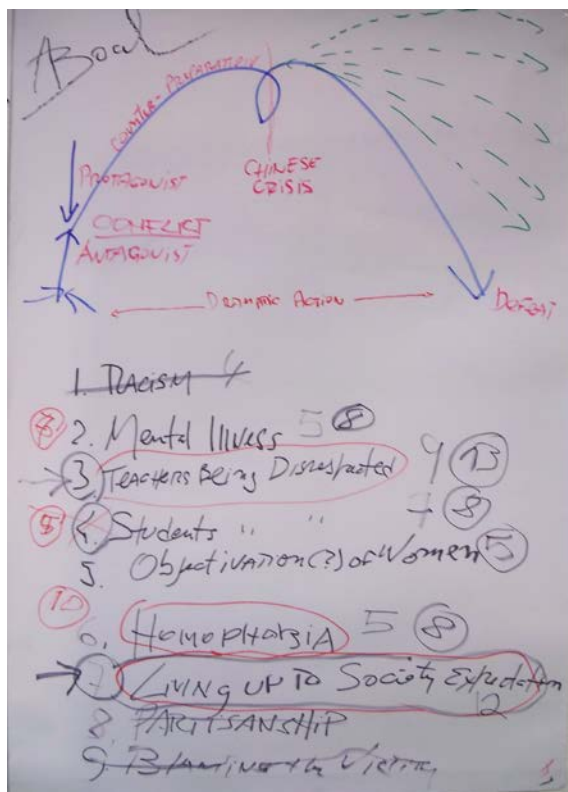 Boal
COUNTER-PREPARATION
PROTAGONIST
CONFLICT
ANTAGONIST
CHINESE
CRISIS
DRAMATIC ACTION
DEFEAT
1. RACISM 4
8 2. Mental Illness 5 8
3 TEACHERS BEING DISRESPECTED 9 13
8 4. Students " " 7 8
5. Objectivation(?) of Women 5
10
6. HOMOPHOBIA 5 8
7 LIVING UP TO Society Expectation
12
8. PARTISANSHIP
9. BLAMING the VICTIM